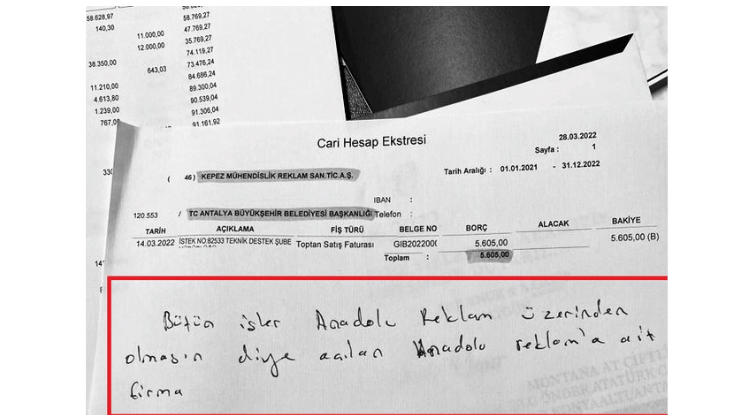 58.628,97
58.769,27
140,30
47.769,27
11.000,00
35.769,27
12.000,00
74.119,27
38.350,00
73.476,24
643,03
84.686,24
11.210,00
89.300,04
4.613,80
90.539,04
1.239,00
91.306,04
767,00
91.161,92
Cari Hesap Ekstresi
28.03.2022
Sayfa : 1
( 46 ) KEPEZ MÜHENDİSLİK REKLAM SAN.TİC.A.Ş.
Tarih Aralığı : 01.01.2021 - 31.12.2022
IBAN :
120.553 / TC ANTALYA BÜYÜKŞEHİR BELEDİYESİ BAŞKANLIĞI Telefon :
TARİH AÇIKLAMA FİŞ TÜRÜ BELGE NO BORÇ ALACAK BAKİYE
14.03.2022 İSTEK NO:82533 TEKNİK DESTEK ŞUBE Toptan Satış Faturası GIB202200 5.605,00 5.605,00 (B)
Toplam : 5.605,00
Bütün işler Anadolu Reklam üzerinden
olmasın diye açılan Anadolu reklam'a ait
firma
MONTANA AT ÇİFTLİ